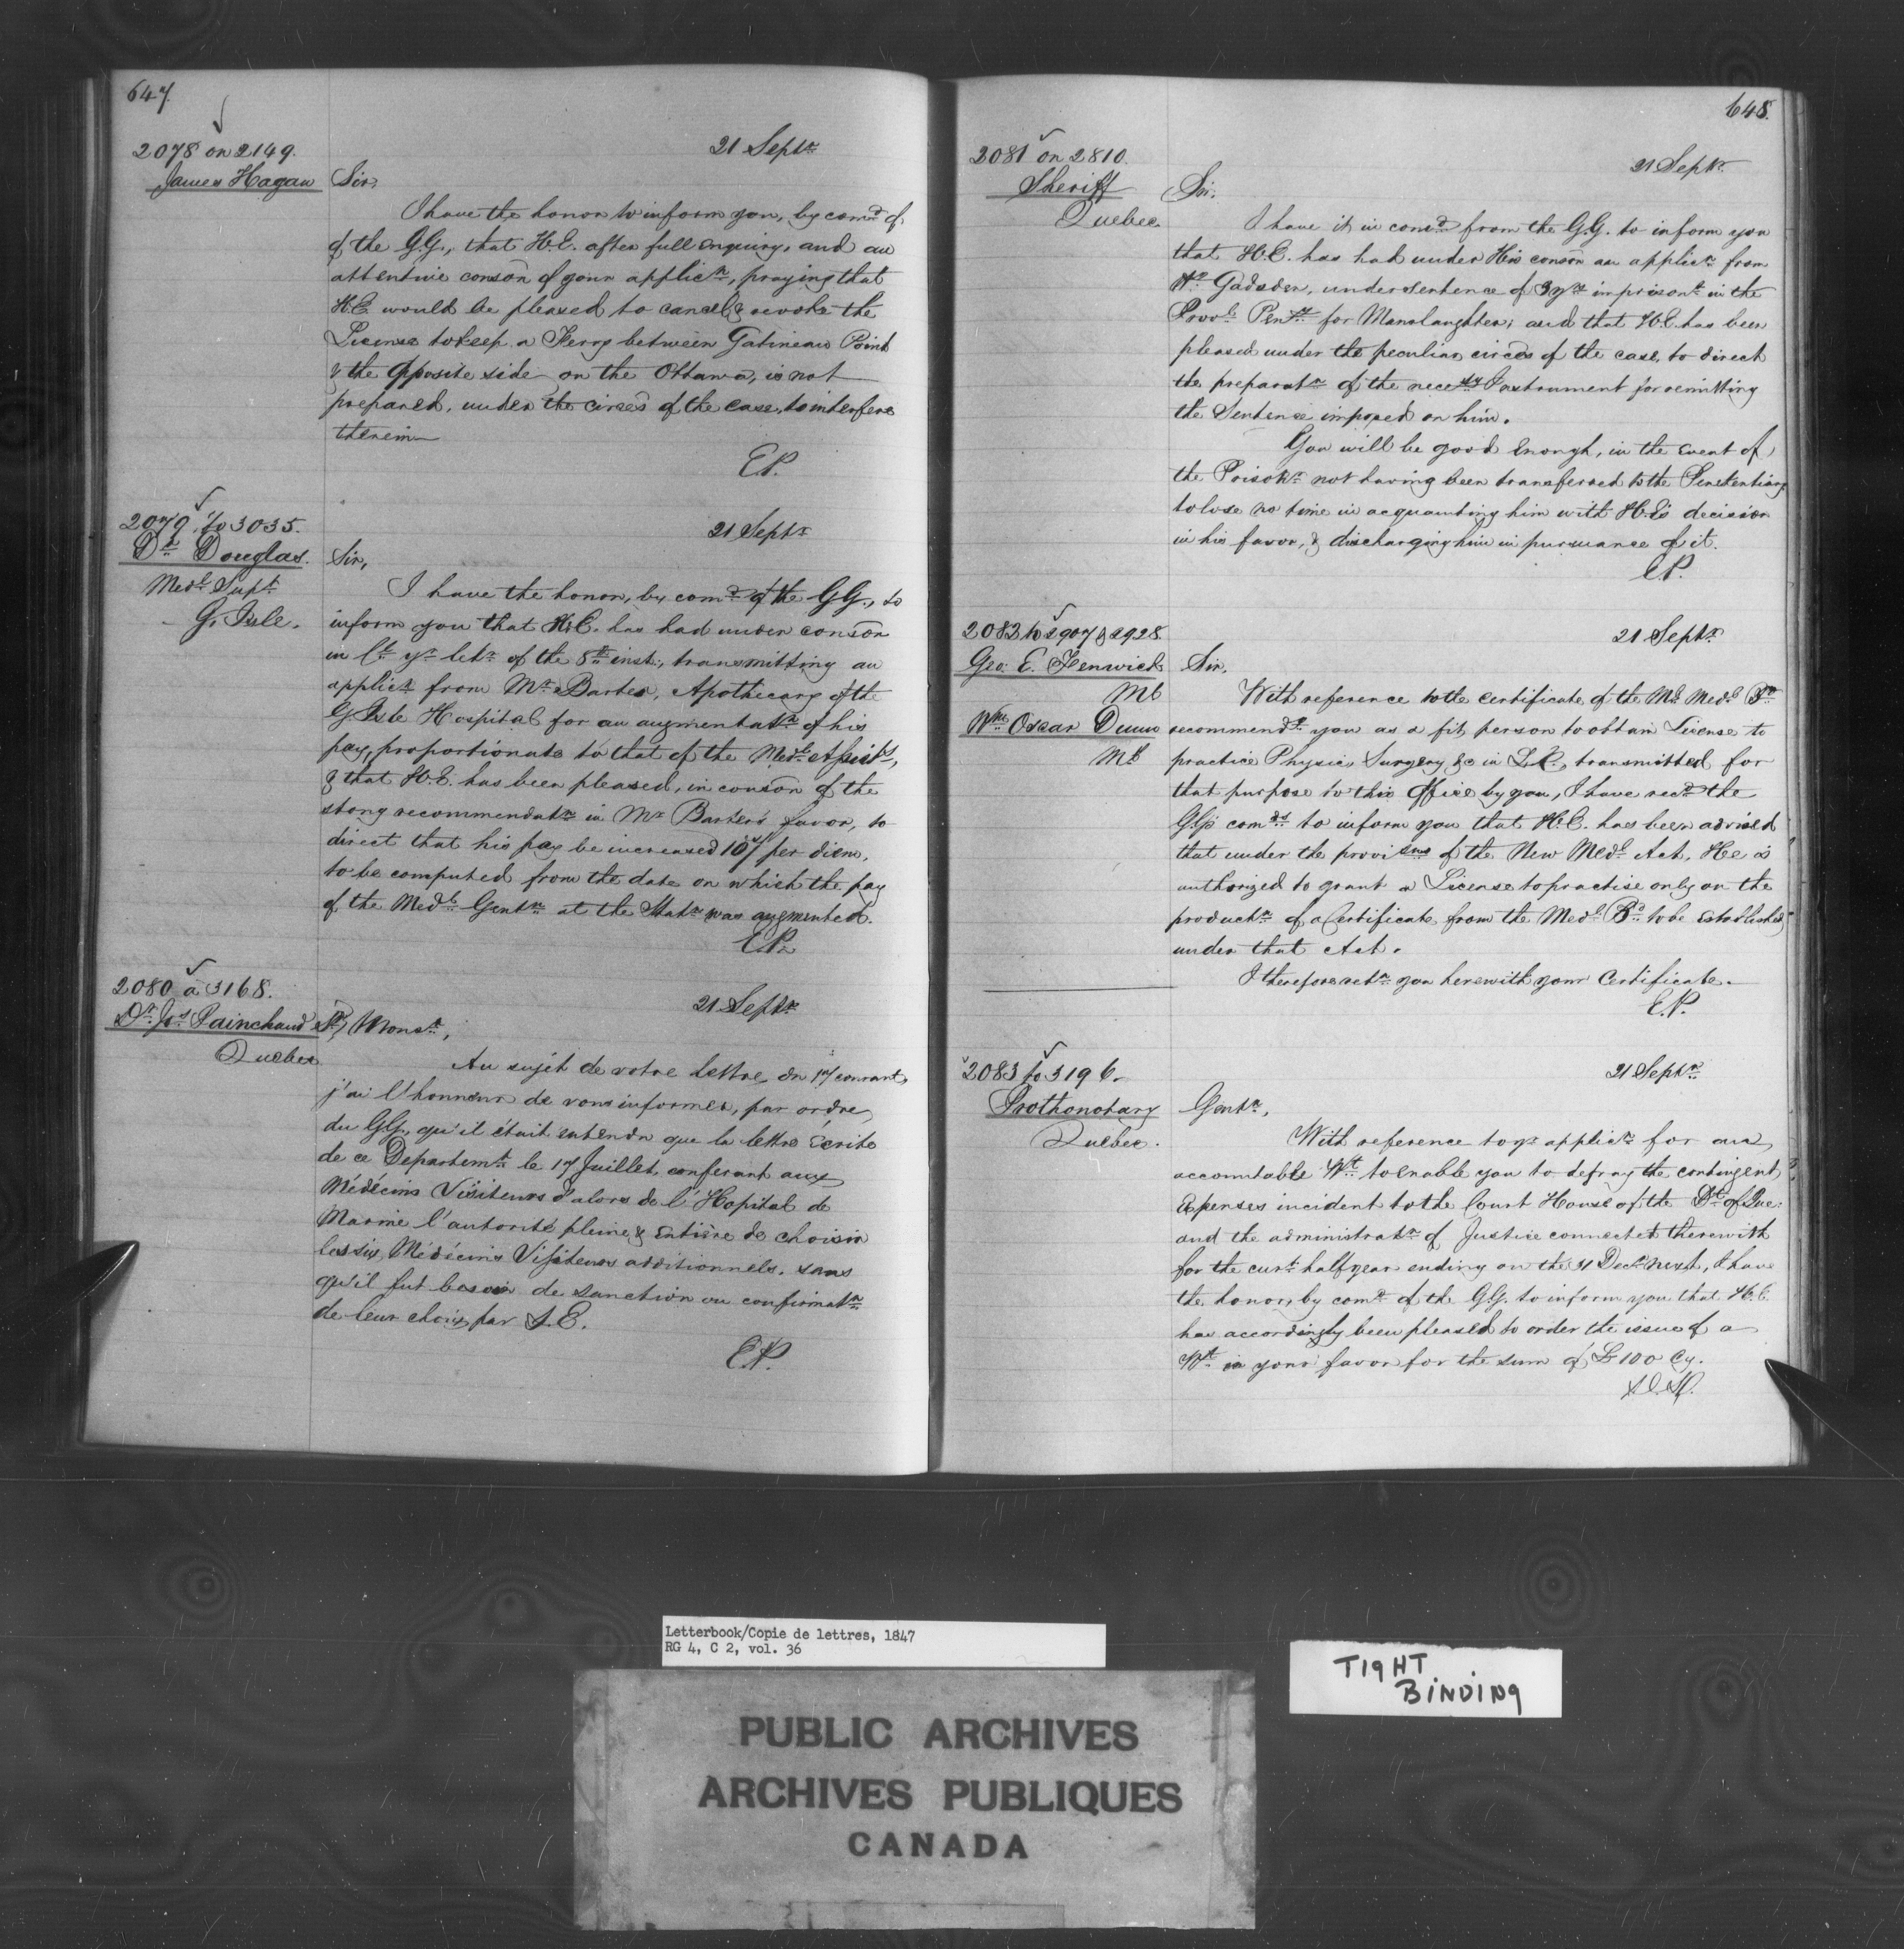 647.
2078 on 2149.
James Hagan
21 Septr
Sir,
I have the honor to inform you, by comd of
of the G.G., that H.E. after full enquiry, and an
attentive conson of your applicn, praying that
H.E. would be pleased to cancel & revoke the
License to keep a Ferry between Gatineau Point
& the opposite side on the Ottawa, is not
prepared, under the circes of the case, to interfere
therein
E.P.
2079 to 3035.
Dr Douglas.
Medl Supt
G. Isle.
21 Septr
Sir,
I have the honor, by comd of the G.G., to
inform you that H.E. has had under conson
yr letr of the 8th inst., transmitting an
applicn from Mr Barter, Apothecary of the
G. Isle Hospital for an augmentatn of his
pay, proportionate to that of the Medl Assists,
& that H.E. has been pleased, in conson of the
strong recommendatn in Mr Barter's favor, to
direct that his pay be increased per diem,
to be computed from the date on which the pay
of the Medl Gentn at the Statn was augmented.
E.P.
2080 à 3168.
Dr Jos Painchaud
Quebec
21 Septr
Monsr,
Au sujet de votre lettre du 17 courant,
j'ai l'honneur de vous informer, par ordre
du G.G., qu'il était entendu que la lettre écrite
de ce Departemt le 17 Juillet, conferant aux
Médécins Visiteurs d'alors de l'Hopital de
Marine l'autorité pleine & entière de choisir
les six Médécins Visiteurs additionnels, sans
qu'il fut besoin de sanction ou confirmatn
de leur choix par S.E.
E.P.
648.
2081 on 2810.
Sheriff
Quebec
21 Septr
Sir,
I have it in comd from the G.G. to inform you
that H.E. has had under His conson an applicn from
Wm Gadsden, under sentence of 3 yrs imprisont in the
Provl Penty for Manslaughter; and that H.E. has been
pleased under the peculiar circes of the case, to direct
the preparatn of the necesy Instrument for remitting
the Sentence imposed on him.
You will be good enough, in the event of
the Prisonr not having been transferred to the Penitentiary
to lose no time in acquainting him with H.E's decision
in his favor, & discharging him in pursuance of it.
E.P.
2082 to 2907 & 2928
Geo: E. Fenwick
Ml
Wm Oscar Dunn
Ml
21 Septr
Sir,
With reference to the Certificate of the Ml Medl Bd
recommendg you as a fit person to obtain License to
practice Physic, Surgery &c in L.C., transmitted for
that purpose to this Office by you, I have recd the
G.G's comds to inform you that H.E. has been advised
that under the provisns of the New Medl Act, He is
authorized to grant a License to practise only on the
productn of a Certificate from the Medl Bd to be Established
under that Act.
I therefore retn you herewith your Certificate.
E.P.
2083 to 3196.
Prothonotary
Quebec.
21 Septr
Gentn,
With reference to yr applicn for an
accountable Wt to enable you to defray the contingent
Expenses incident to the Court House of the Dt of Que:
and the administratn of Justice connected therewith
for the curt half year ending on the 31 Decr next, I have
the honor, by comd of the G.G. to inform you that H.E.
has accordingly been pleased to order the issue of a
Wt in your favor for the sum of £100 Cy.
Letterbook/Copie de lettres, 1847
RG 4, C 2, vol. 36
TIGHT
BINDING
PUBLIC ARCHIVES
ARCHIVES PUBLIQUES
CANADA